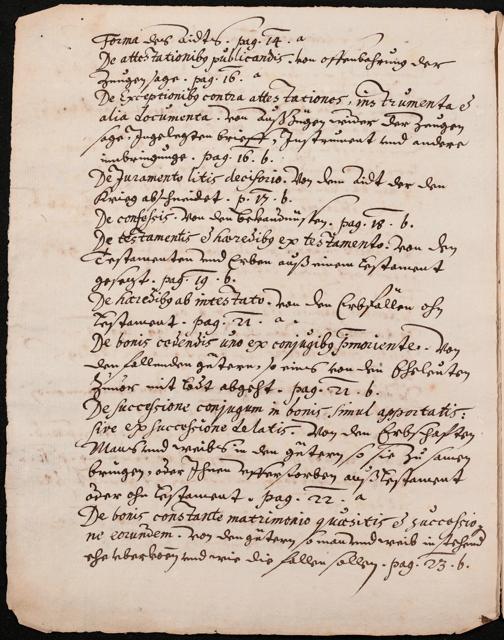 Forma des Aidts. pag. 14. a
De attestationibus publicandis. von offenbahrung der
Zeugen sage. pag. 16. a
De Exceptionibus contra attestationes, instrumenta &
alia documenta. von Außzügen wider der Zeugen
sage, Ingelegten brieff, Instrument und andere
inbringunge. pag. 16. b.
De Juramento litis decisorio. Von dem Aidt der den
Krieg abschneidet. p. 17. b.
De confessis. Von den bekandnüssen. pag. 18. b.
De testamentis & hæredibus ex testamento. Von den
Testamenten und Erben auß einem testament
gesetzt. pag. 19. b.
De hæredibus ab intestato. Von den Erbfällen ohn
testament. pag. 21. a.
De bonis cedendis uno ex conjugibus præmoriente. Von
den fallenden gütern, so eins von den Eheleuten
Zuvor mit todt abgeht. pag. 21. b.
De successione conjugum in bonis. simul apportatis:
sive ex successione delatis. Von den Erbschaften
Mans und weibs in den gütern so sie zu samen
bringen, oder Ihnen ufferstorben auß testament
oder ohn testament. pag. 22. a
De bonis constante matrimonio quæsitis & successio
ne eorundem. Von den gütern so man und weib in stehend
ehe uberkom und wie die fallen sollen. pag. 23. b.